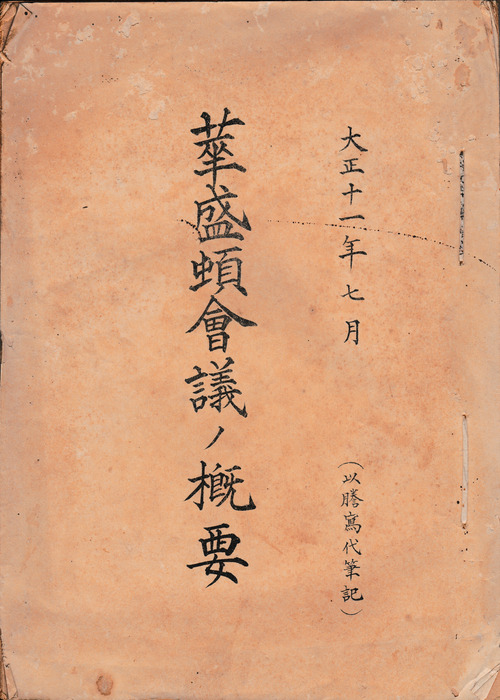 大正十一年七月
(以謄寫代筆記)
華盛頓會議ノ概要